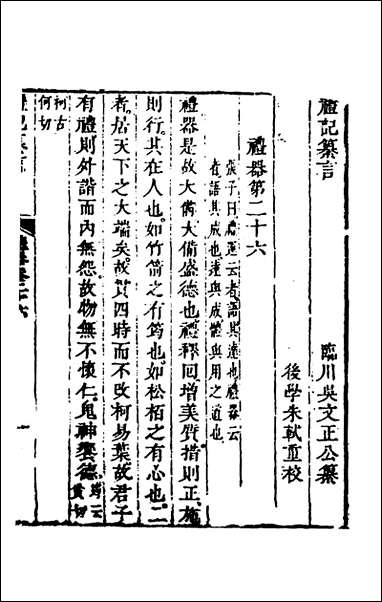 禮記纂言
臨川吳文正公纂
後學朱軾重校
禮器第二十六
張子曰禮運云者語其達也禮器云
者語其成也達與成體與用之道也
禮器是故大備大備盛德也禮釋回增美質措則正施
則行其在人也如竹箭之有筠也如松柏之有心也二
者居天下之大端矣故貫四時而不改柯易葉故君子
有禮則外諧而內無怨故物無不懷仁鬼神饗德筠云
貧切
柯古
何切